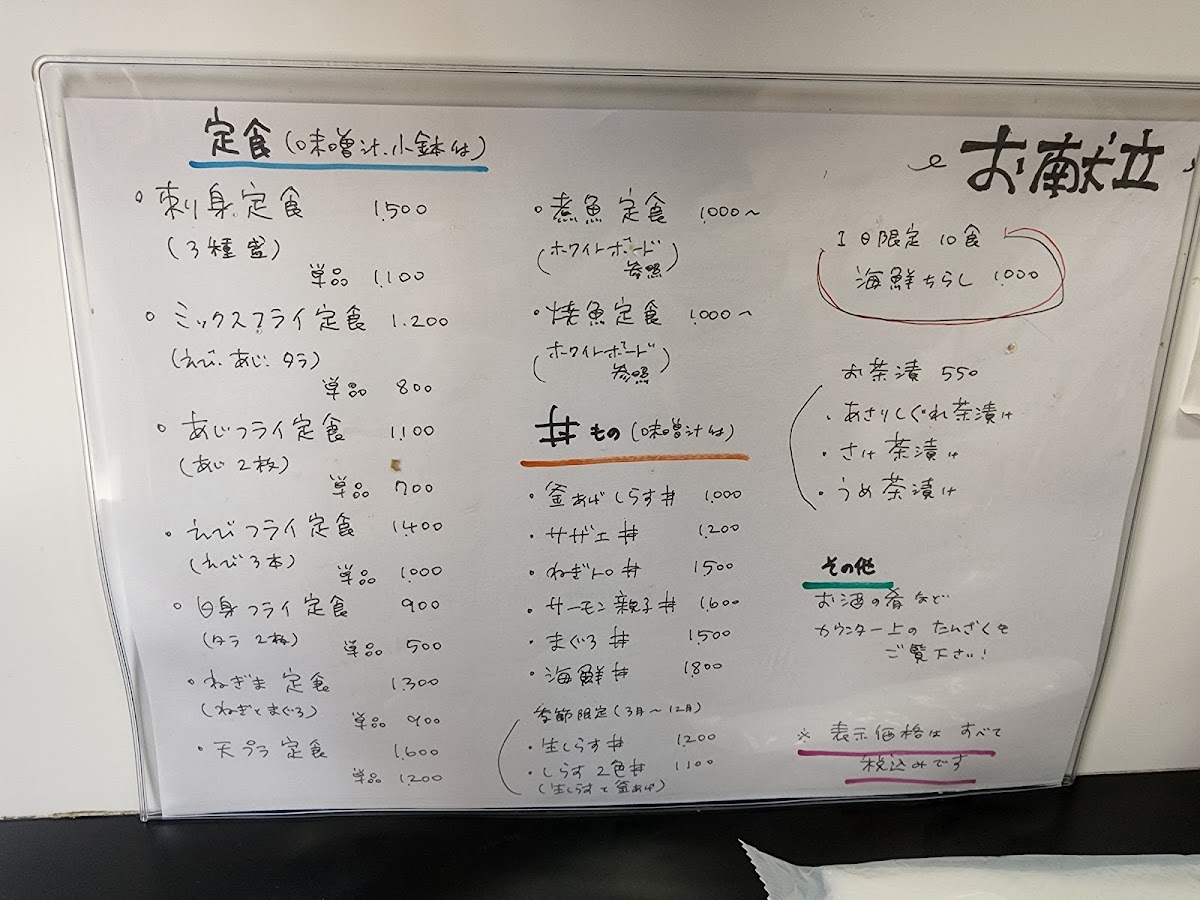 お献立
定食(味噌汁、小鉢付)
・刺身定食 1,500
(3種盛)
単品 1,100
・ミックスフライ定食 1,200
(えび、あじ、タラ)
単品 800
・あじフライ定食 1,100
(あじ2枚)
単品 700
・えびフライ定食 1,400
(えび3本)
単品 1,000
・白身フライ定食 900
(タラ2枚)
単品 500
・ねぎま定食 1,300
(ねぎとまぐろ)
単品 900
・天プラ定食 1,600
単品 1,200
・煮魚定食 1,000〜
(ホワイトボード
参照)
・焼魚定食 1,000〜
(ホワイトボード
参照)
丼もの(味噌汁付)
・釜あげしらす丼 1,000
・サザエ丼 1,200
・ねぎトロ丼 1,500
・サーモン親子丼 1,600
・まぐろ丼 1,500
・海鮮丼 1,800
季節限定(3月〜12月)
・生しらす丼 1,200
・しらす2色丼 1,100
(生しらすと釜あげ)
1日限定10食
海鮮ちらし 1,000
お茶漬 550
・あさりしぐれ茶漬け
・さけ茶漬け
・うめ茶漬け
その他
お酒の肴など
カウンター上のたんざくを
ご覧下さい!
※表示価格はすべて
税込みです